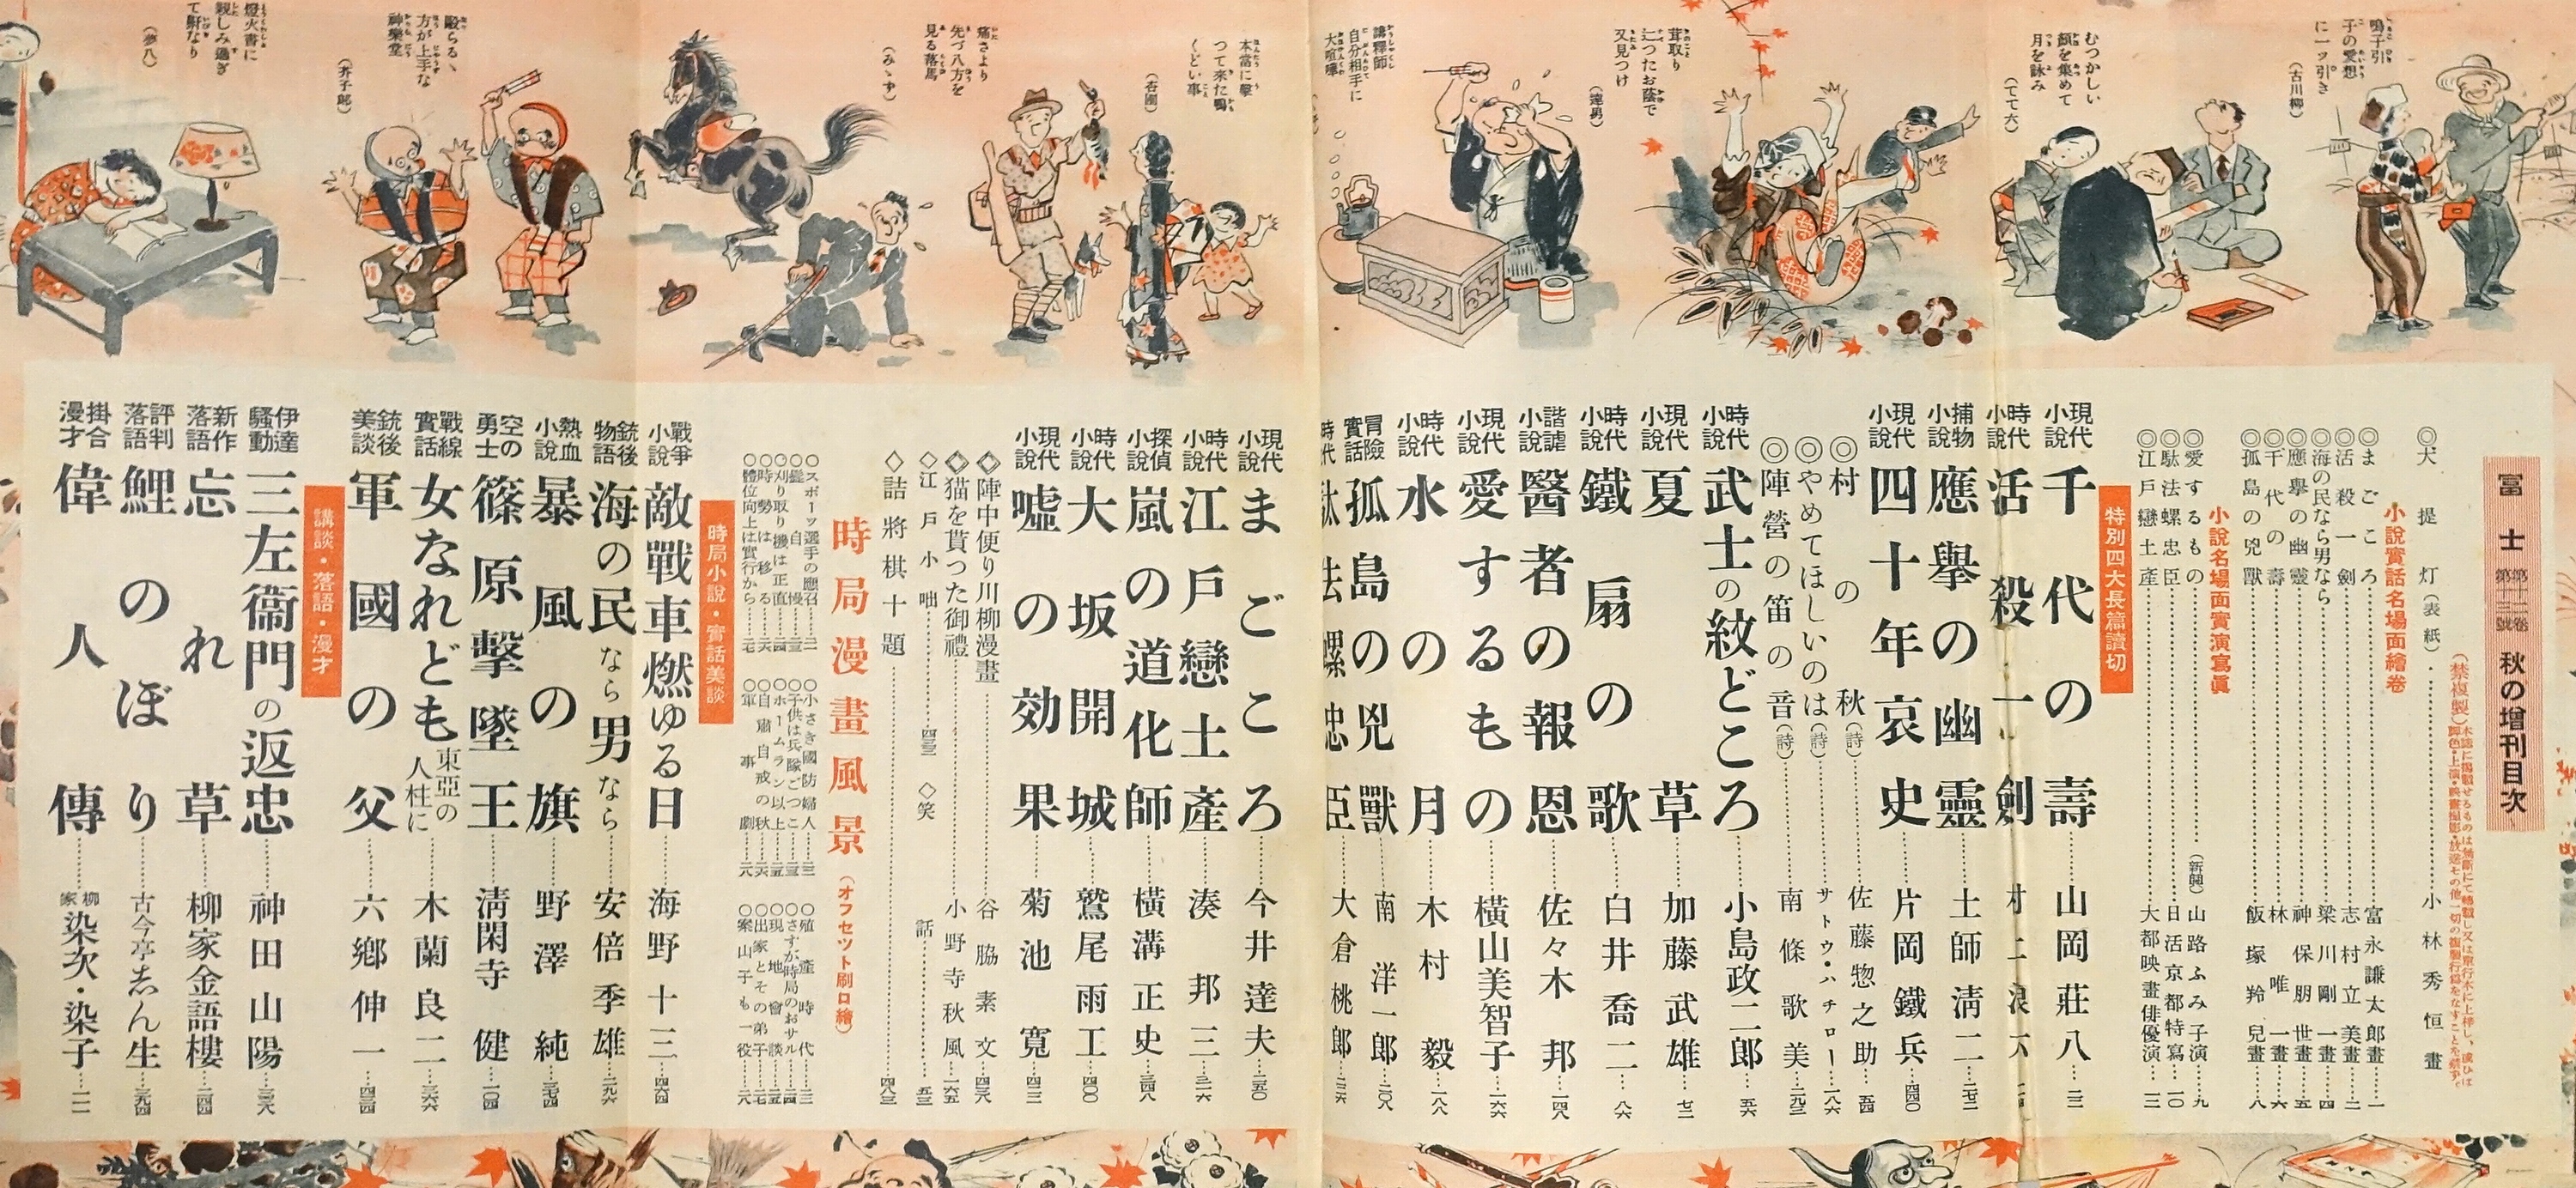 富士 第十二卷 第十三號 秋の增刊目次
(禁複製)
◎犬提灯(表紙)……小林秀恒畫
小說實話名場面繪卷
◎まごころ……富永謙太郎畫…一
◎活殺一劍……志村立美畫…二
◎海の民なら男なら……梁川剛一畫…四
◎應擧の幽靈……神保朋世畫…五
◎千代の壽……林唯一畫…六
◎孤島の兇獸……飯塚羚兒畫…八
小說名場面實演寫眞
◎愛するもの……(新興)山路ふみ子演…九
◎駄法螺忠臣……日活京都特寫…一〇
◎江戶戀土產……大都映畫俳優演…一二
特別四大長篇讀切
現代小說 千代の壽……山岡莊八
時代小說 活殺一劍
捕物小說 應擧の幽靈……土師淸二
現代小說 四十年哀史……片岡鐵兵…四四〇
◎村の秋(詩)……佐藤惣之助…五四
◎やめてほしいのは(詩)……サトウ・ハチロー…一八六
◎陣營の笛の音(詩)……南條歌美…二九三
時代小說 武士の紋どころ……小島政二郎…五六
現代小說 夏草……加藤武雄…七二
時代小說 鐵扇の歌……白井喬二…八六
諧謔小說 醫者の報恩……佐々木邦…一四八
現代小說 愛するもの……橫山美智子…一六六
時代小說 水の月……木村毅…一八八
冒險實話 孤島の兇獸……南洋一郎…二〇八
駄法螺忠臣……大倉桃郎
現代小說 まごころ……今井達夫…二五〇
時代小說 江戶戀土產……湊邦三…三一六
探偵小說 嵐の道化師……橫溝正史…三四八
時代小說 大坂開城……鷲尾雨工…四〇〇
現代小說 嘘の効果……菊池寬
◇陣中便り川柳漫畫……谷脇素文
◇猫を貰つた御禮……小野寺秋風…一六五
◇江戶小咄…… ◇笑話……
◇詰將棋十題……四八三
時局漫畫風景(オフセツト刷口繪)
○スポーツ選手の應召
○鬢自慢
○刈り取り機は正直
○時勢は移る
○體位向上は實行から
○小さき國防婦人
○子供は兵隊ごつこ
○ホームラン以上
○自肅自戒の秋
○軍事劇
○殖產時代
○さすが時局のおサル
○現地會談
○出家とその弟子
○案山子も一役
時局小說・實話美談
戰爭小說 敵戰車燃ゆる日……海野十三…四六四
銃後物語 海の民なら男なら……安倍季雄…二九六
熱血小說 暴風の旗……野澤純
空の勇士 篠原擊墜王……淸閑寺健…一〇四
戰線實話 女なれども東亞の人柱に……木蘭良二
銃後美談 軍國の父……六鄕伸一
講談・落語・漫才
伊達騷動 三左衞門の返忠……神田山陽
新作落語 忘れ草……柳家金語樓
評判落語 鯉のぼり……古今亭志ん生
掛合漫才 偉人傳……柳家染次・染子
鳴子引
子の愛想
に一ッ引き
(古川柳)
むつかしい
顏を集めて
月を詠み
(てて六)
茸取り
辷つたお蔭で
又見つけ
(達男)
講釋師
自分相手に
大喧嘩
本當に擊
つて來た鴨
くどい事
(杏圃)
痛さより
先づ八方を
見る落馬
(みゝず)
毆らるゝ
方が上手な
神樂堂
(芥子郞)
燈火書に
親しみ過ぎ
て鼾なり
(夢八)